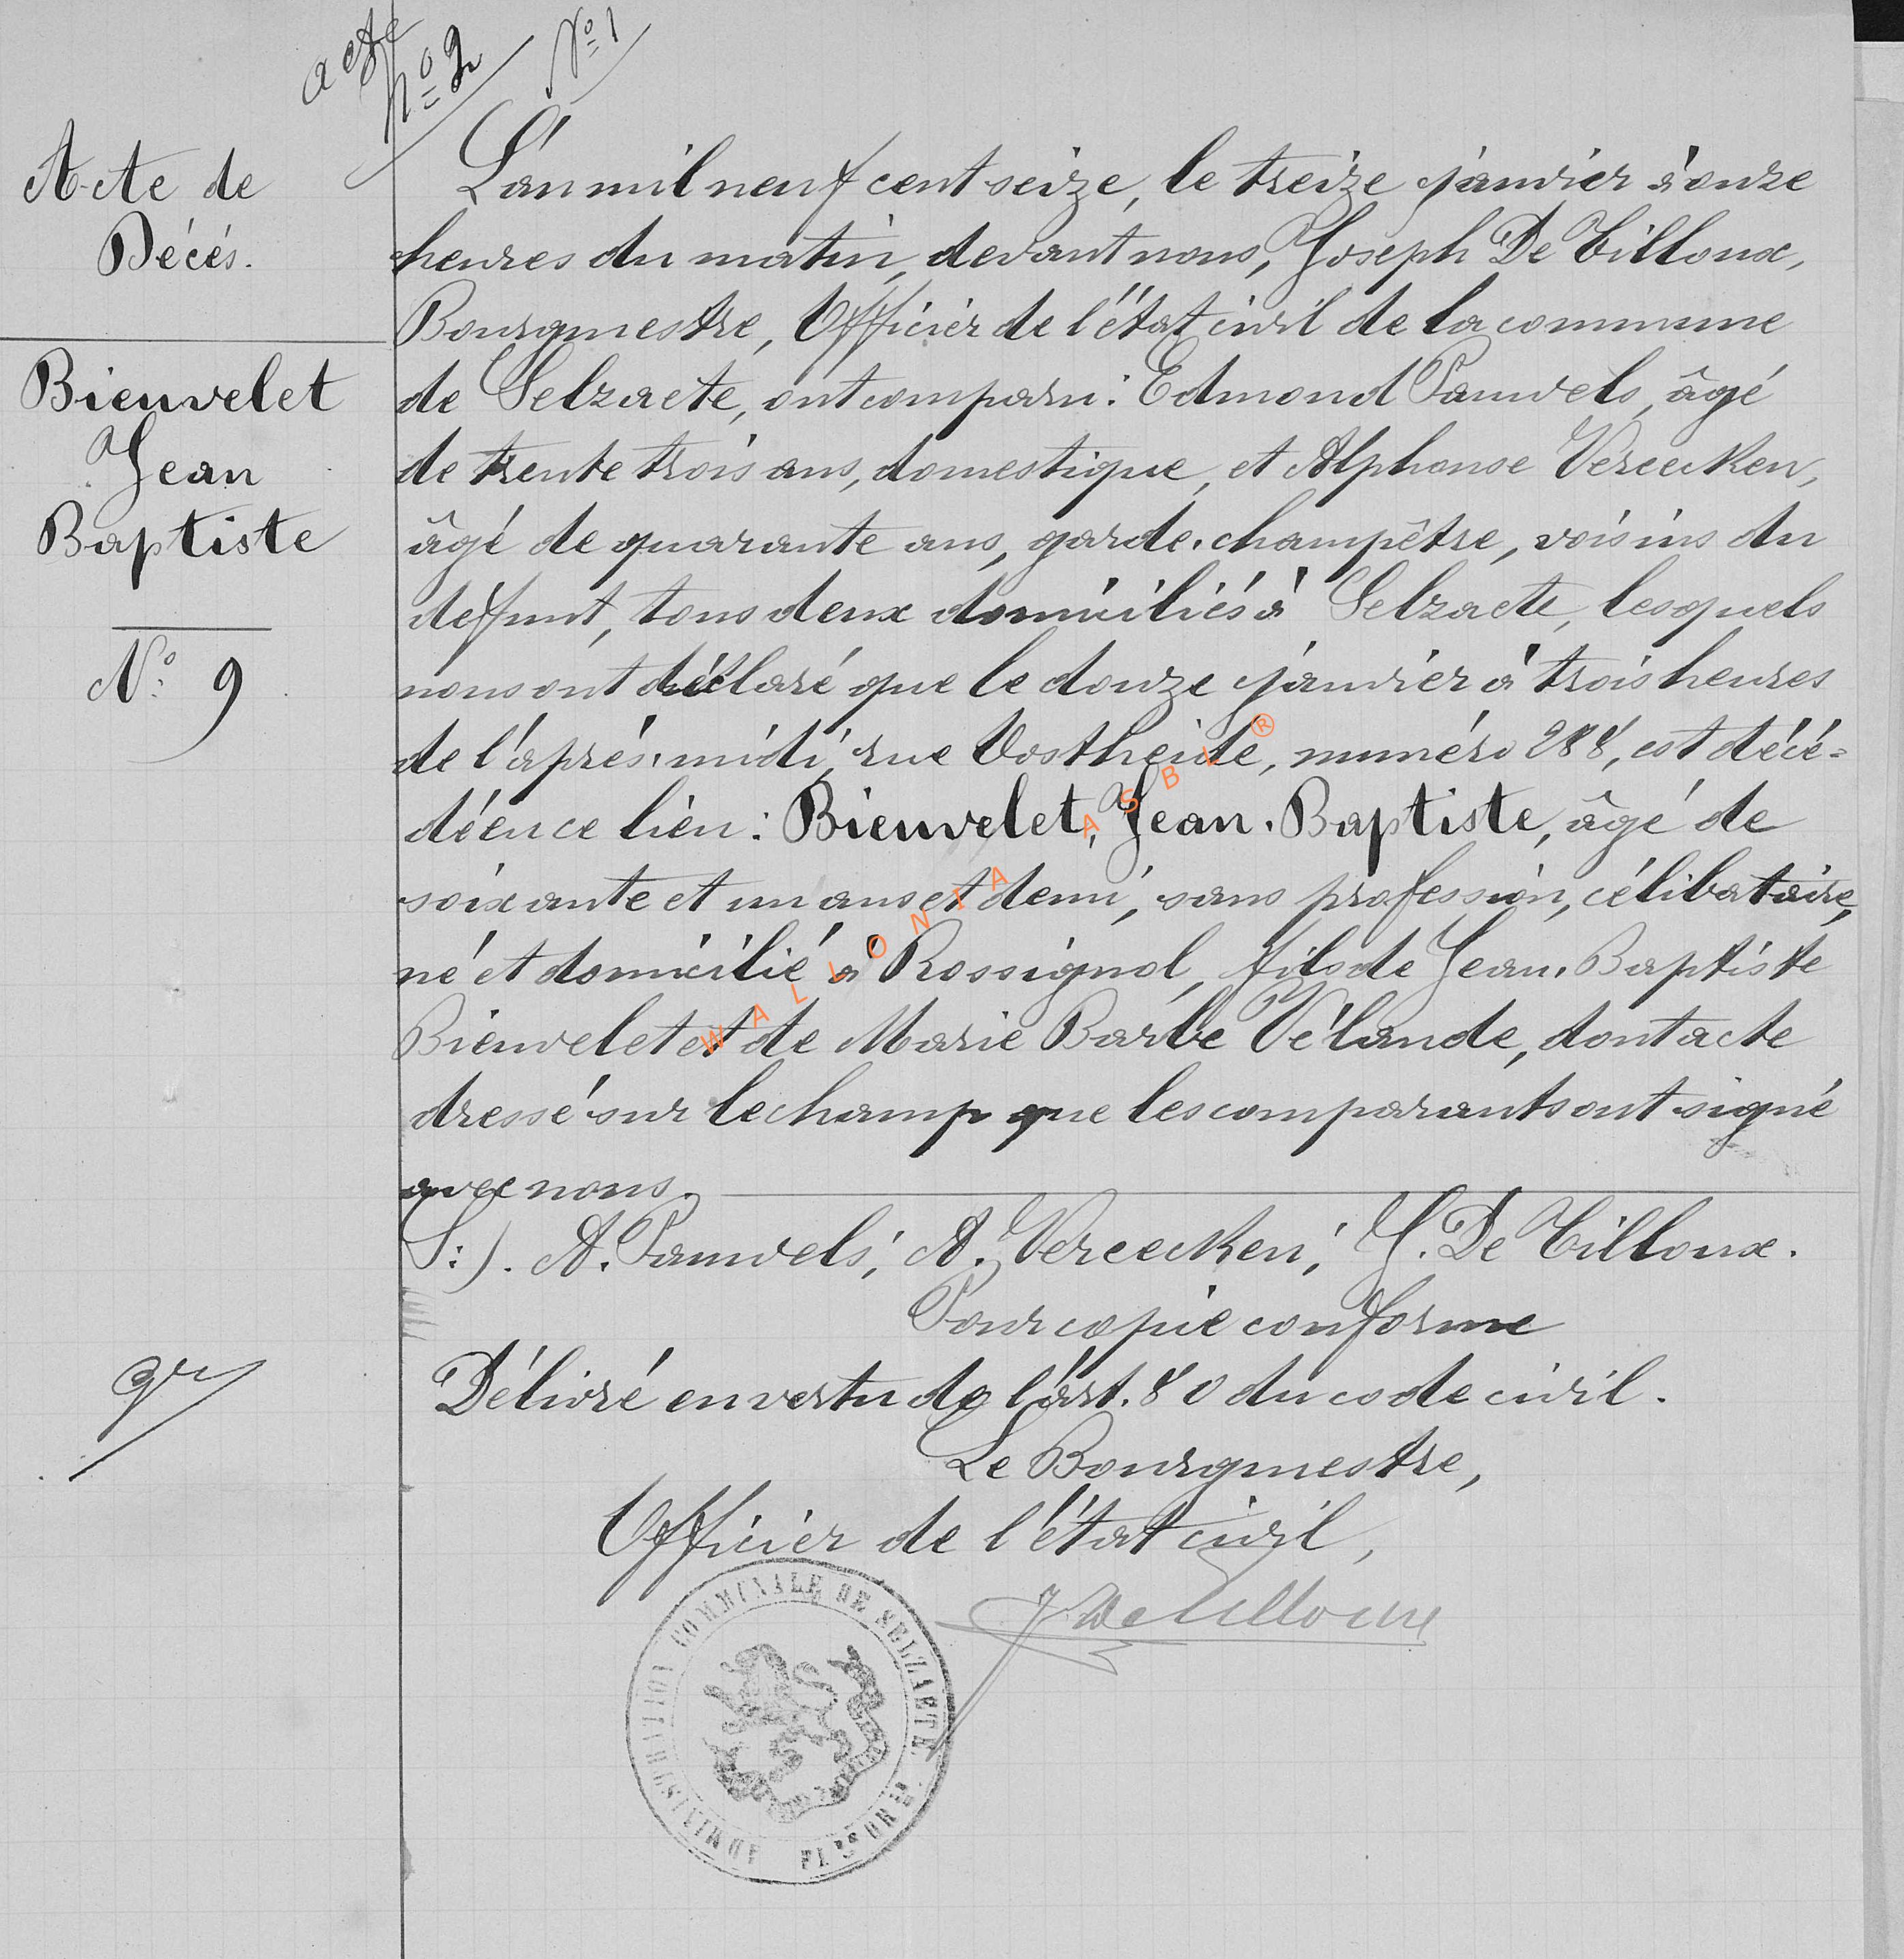 acte
N° 2
N° 1
Acte de
Décés.
Bienvelet
Jean
Baptiste
N° 9
L'an mil neuf cent seize, le treize janvier à onze
heures du matin, devant nous, Joseph De Tilloux,
Bourgmestre, Officier de l'état civil de la commune
de Selzaete, ont comparu: Edmond Pauwels, âgé
de trente trois ans, domestique, et Alphonse Vereecken,
âgé de quarante ans, garde-champêtre, voisins du
defunt, tous deux domiciliés à Selzaete, lesquels
nous ont déclaré que le douze janvier à trois heures
de l'après-midi, rue Oostheide, numéro 288, est décé=
dé en ce lieu: Bienvelet, Jean-Baptiste, âgé de
soixante et un ans et demi, sans profession, célibataire,
né et domicilié à Rossignol, fils de Jean-Baptiste
Bienvelet et de Marie Barbe Vélande, dont acte
dressé sur le champ que les comparants ont signé
avec nous.
S:). A. Pauwels; A. Vereecken; J. De Tilloux.
Pour copie conforme
Délivré en vertu de l'art. 80 du code civil.
Le Bourgmestre,
Officier de l'état civil,
J. De Tilloux
ADMINISTRATION COMMUNALE DE SELZAETE
FL. ORIENT.
WALLONIA ASBL ®